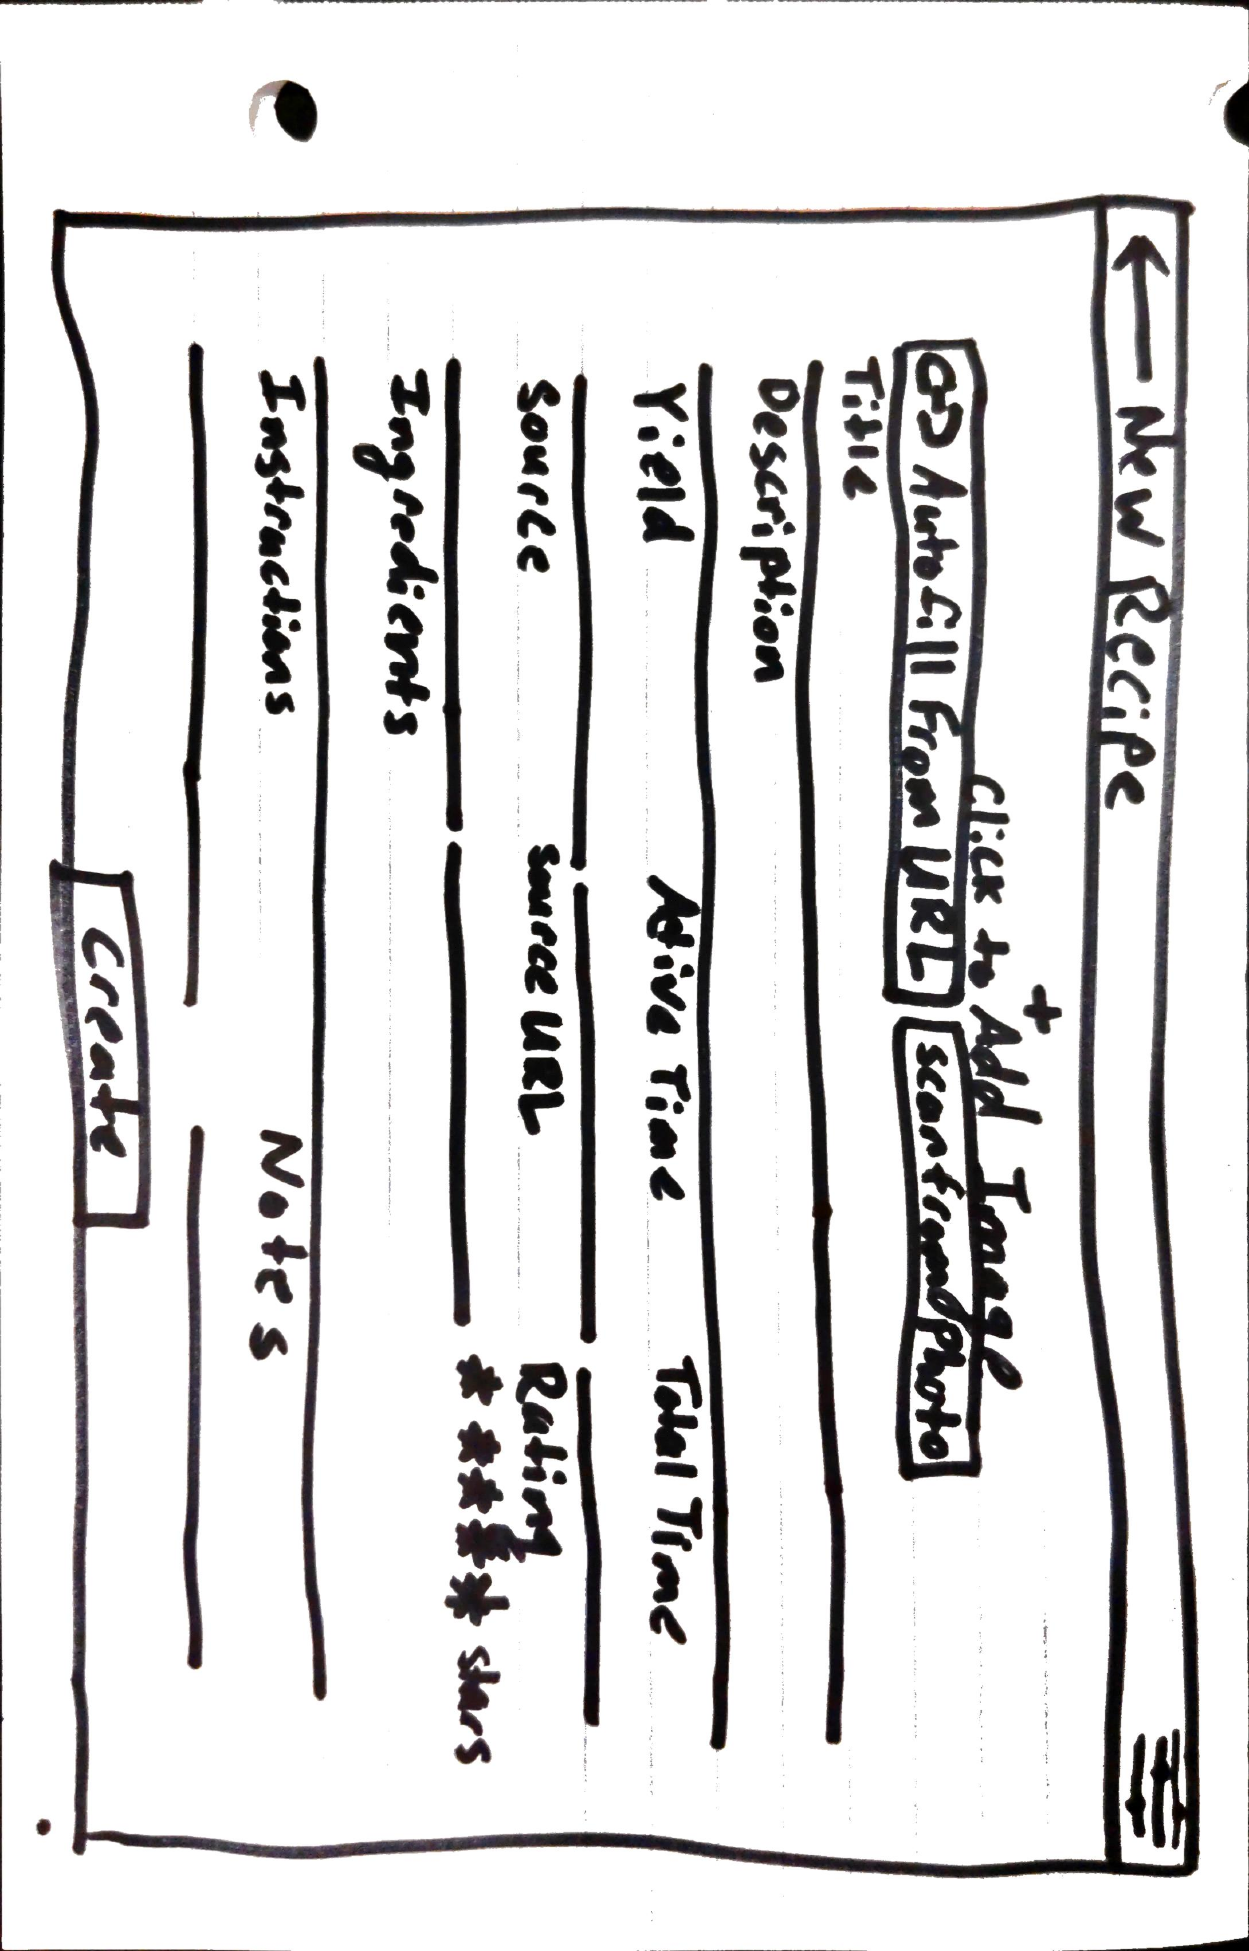 ← New Recipe
+
Click to Add Image
Autofill From URL scan from photo
Title
Description
Yield Active Time Total Time
Source Source URL Rating
***** stars
Ingredients
Instructions Notes
Create